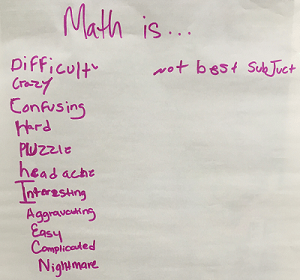 Math is...
Difficult
Crazy
Confusing
Hard
PLUZZLE
head ache
Interesting
Aggravating
Easy
Complicated
Nightmare
not best Subject